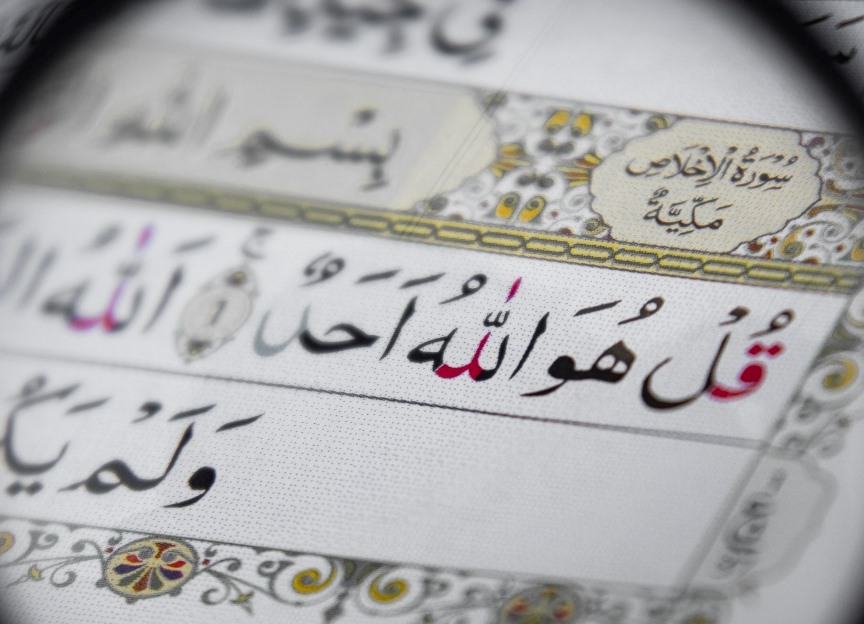 سُورَةُ الْإِخْلَاصِ
مَكِّيَّةٌ
بِسْمِ اللَّهِ
قُلْ هُوَ اللَّهُ أَحَدٌ ۝١ اَللَّهُ
وَلَمْ يَكُ